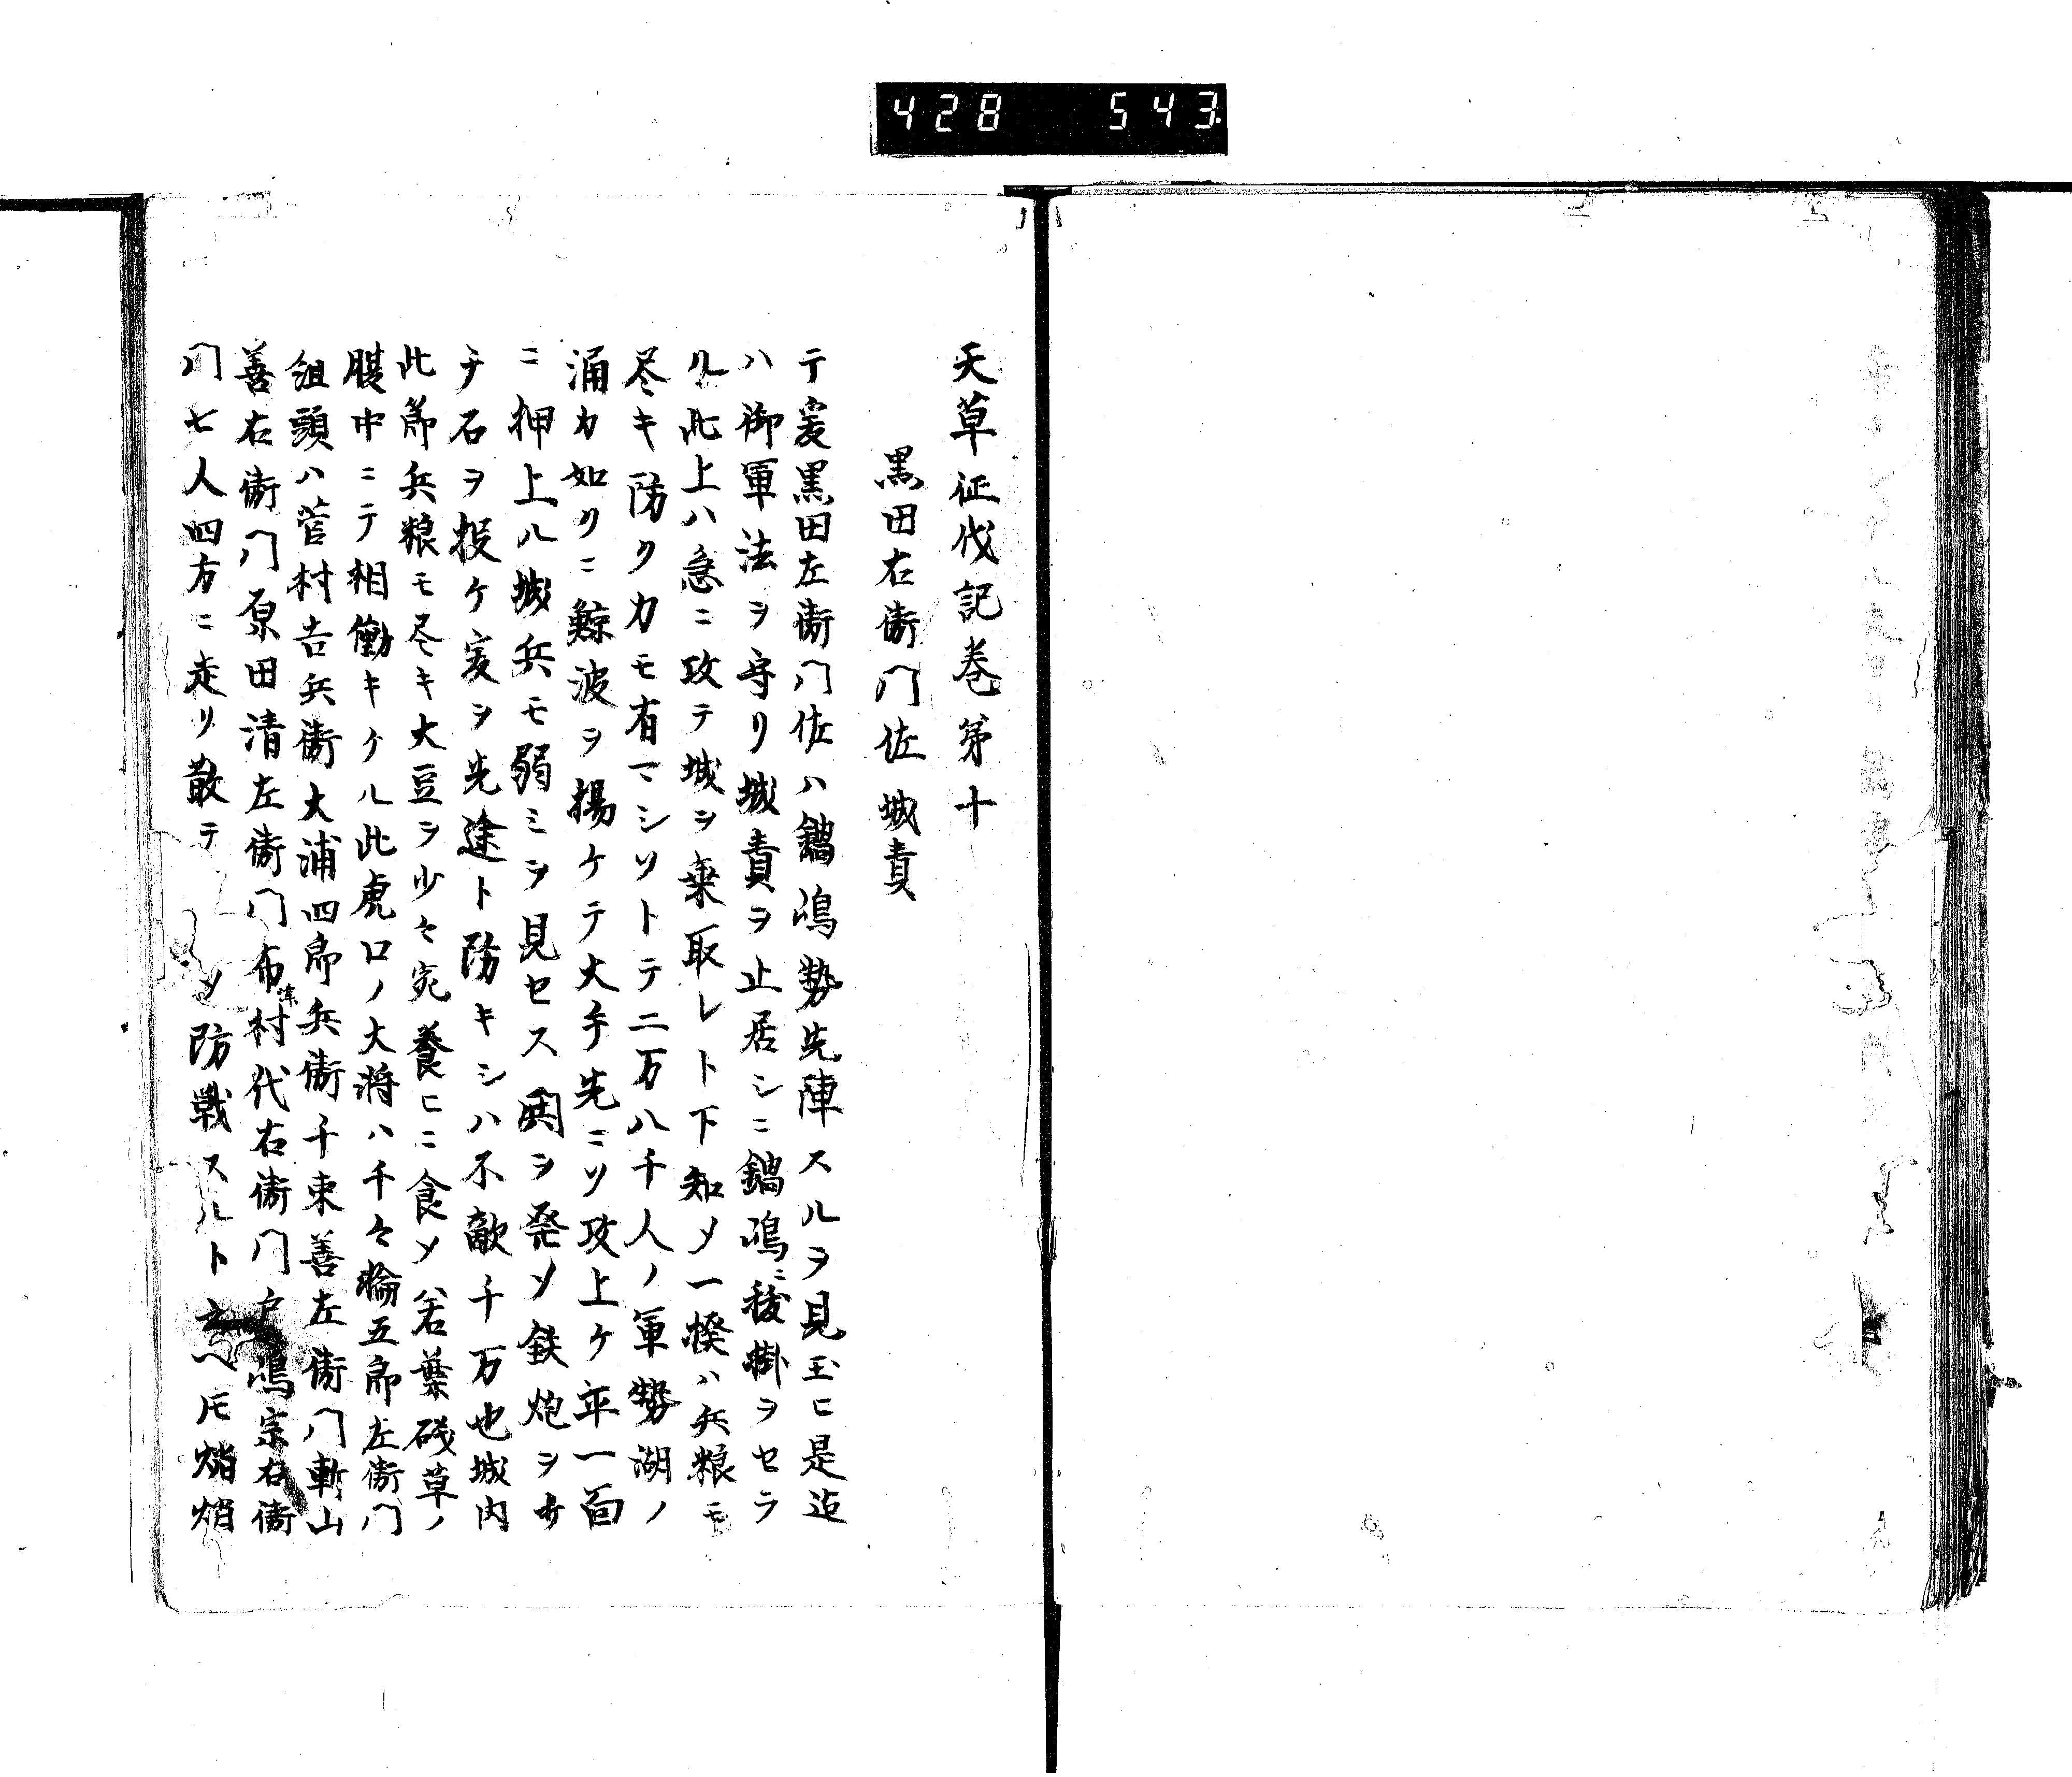 428 543
天草征伐記巻第十
黒田右衛門佐城責
テ爰黒田左衛門佐ハ鍋嶋勢先陣スルヲ見玉ヒ是迠
ハ御軍法ヲ守リ城責ヲ止居シニ鍋嶋ニ抜掛ヲセラ
ル此上ハ急ニ攻テ城ヲ乗取レト下知メ一揆ハ兵粮モ
尽キ防クカモ有マシソトテ二万八千人ノ軍勢湖ノ
涌カ如クニ鯨波ヲ揚ケテ大手先ニリ攻上ケ平一面
ニ押上ル城兵モ弱ミヲ見セス 発メ鉄炮ヲ
チ石ヲ投ケ爰ヲ先途ト防キシハ不敵千万也城内
此節兵粮モ尽キ大豆ヲ少々宛養ヒニ食メ若葉磯草ノ
腹中ニテ相働キケル此虎口ノ大将ハ千々輪五郎左衛門
組頭ハ菅村吉兵衛大浦四郎兵衛千束善左衛門斬山
善右衛門原田清左衛門布津村代右衛門戸嶋宗右衛
門七人四方ニ走リ散テ メ防戦スルト云ヘ𪜈焔焇